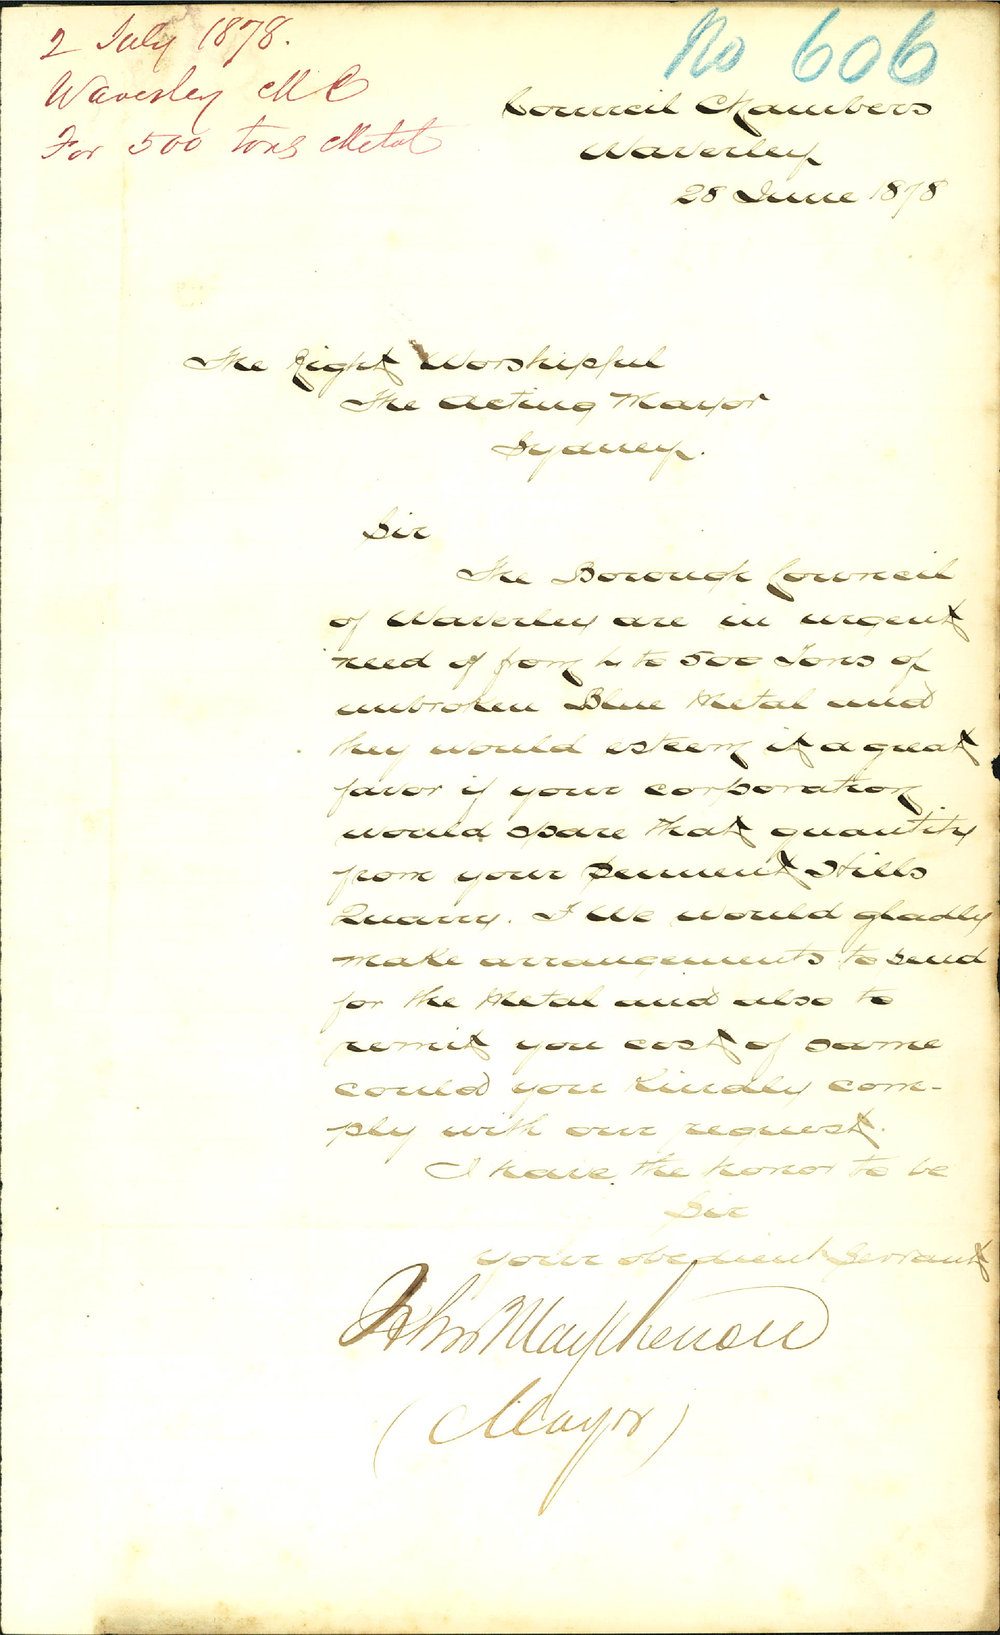 2 July 1878.
Waverley M C
For 500 tons Metal
No 606
Council Chambers
Waverley
28 June 1878
The Right Worshipful
The Acting Mayor
Sydney.
Sir
The Borough Council
of Waverley are in urgent
need of from to 500 Tons of
unbroken Blue Metal and
they would esteem it a great
favor if your corporation
would spare that quantity
from your Pennent Hills
Quarry. I We would gladly
make arrangements to send
for the Metal and also to
remit you cost of same
could you kindly com-
ply with our request.
I have the honor to be
Sir
your obedient Servant
John Macpherson
(Mayor)